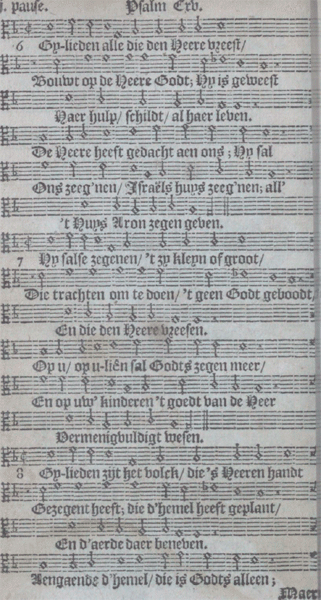 j. pause. Psalm Cxv.
6 Gy-lieden alle die den Heere vreest/
Bouwt op de Heere Godt; Hy is geweest
Haer hulp/ schildt/ al haer leven.
De Heere heeft gedacht aen ons; Hy sal
Ons zeeg'nen/ Israëls huys zeeg'nen; all'
't Huys Aron zegen geven.
7 Hy salse zegenen/ 't zy kleyn of groot/
Die trachten om te doen/ 't geen Godt geboodt/
En die den Heere vreesen.
Op u/ op u-liên sal Godts zegen meer/
En op uw' kinderen 't goedt van de Heer
Vermenigvuldigt wesen.
8 Gy-lieden zijt het volck/ die 's Heeren handt
Gezegent heeft; die d'hemel heeft geplant/
En d'aerde daer beneven.
Aengaende d'hemel/ die is Godts alleen;
Maer